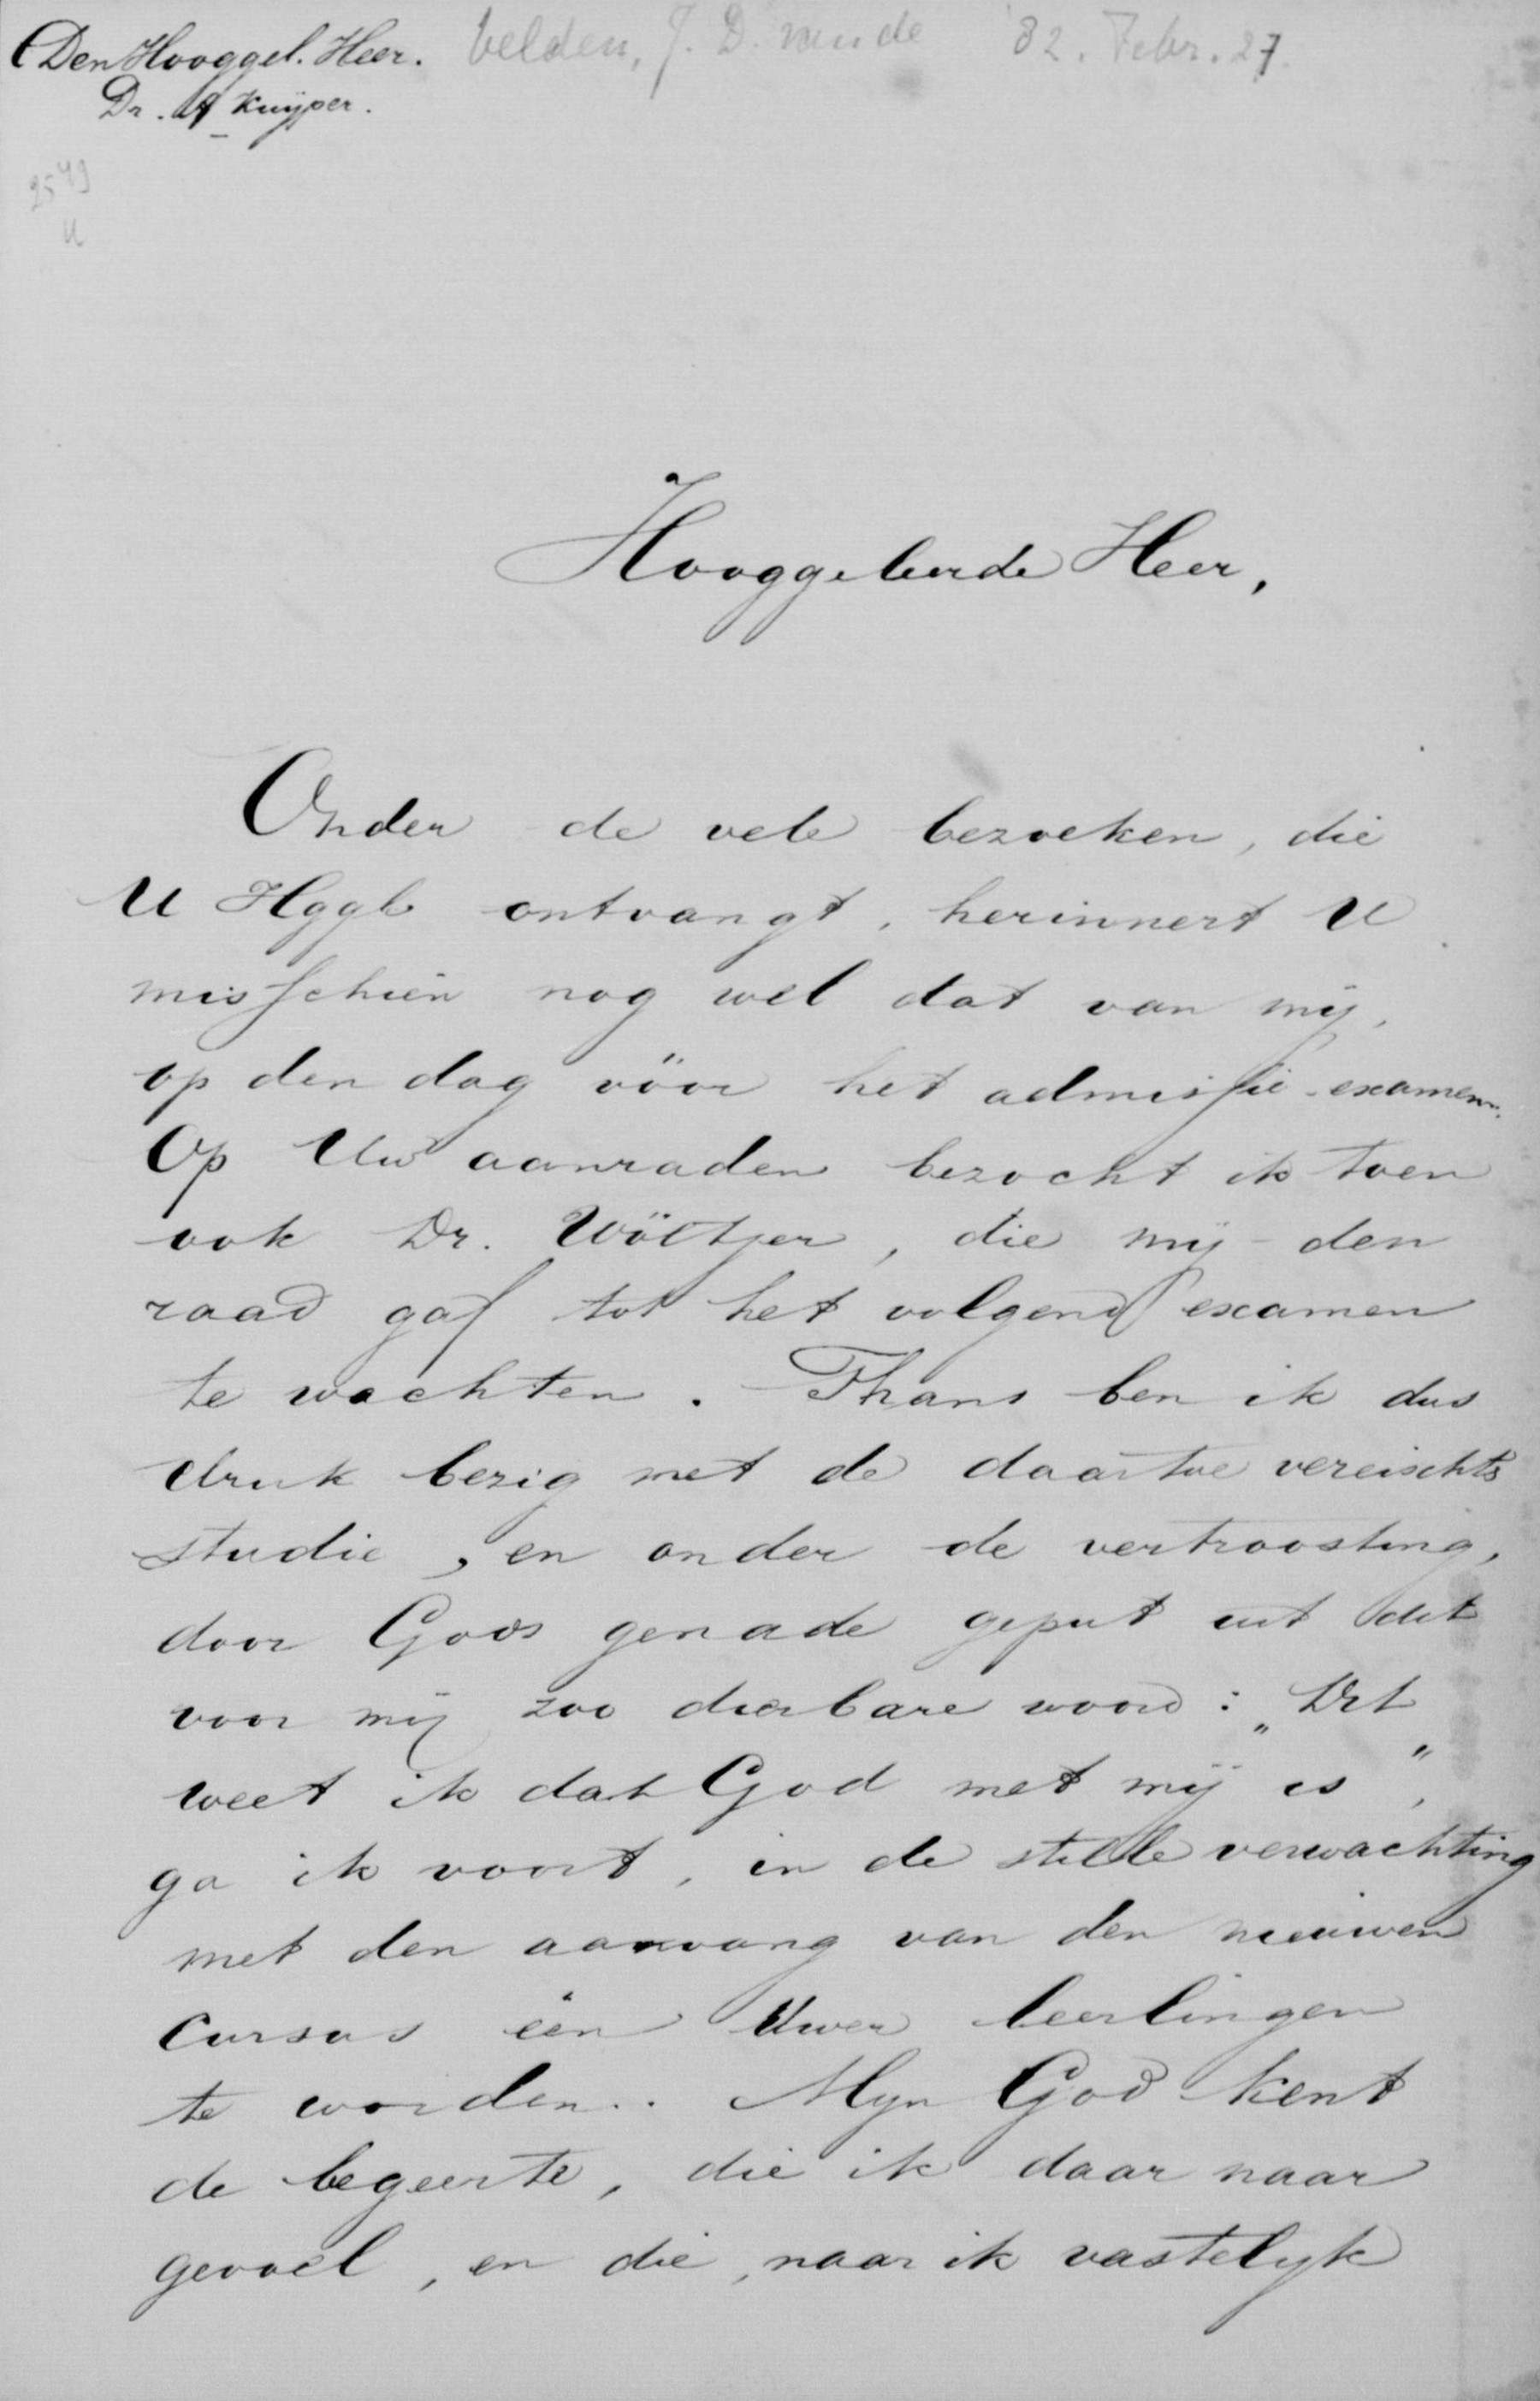 Den Hooggel. Heer.
Dr. A Kuijper.
Velden, J. D. van de '82. Febr. 27.
2549
Hooggeleerde Heer,
Onder de vele bezoeken, die
U Hggl ontvangt, herinnert U
misschien nog wel dat van mij,
op den dag vóór het admissie-examen.
Op Uw aanraden bezocht ik toen
ook Dr. Wöltjer, die mij den
raad gaf tot het volgend examen
te wachten. Thans ben ik dus
druk bezig met de daartoe vereischte
studie, en onder de vertroosting,
door Gods genade geput uit dit
voor mij zoo dierbare woord: „Dit
weet ik dat God met mij is",
ga ik voort, in de stille verwachting
met den aanvang van den nieuwen
cursus één Uwer leerlingen
te worden. Mijn God kent
de begeerte, die ik daar naar
gevoel, en die, naar ik vastelijk